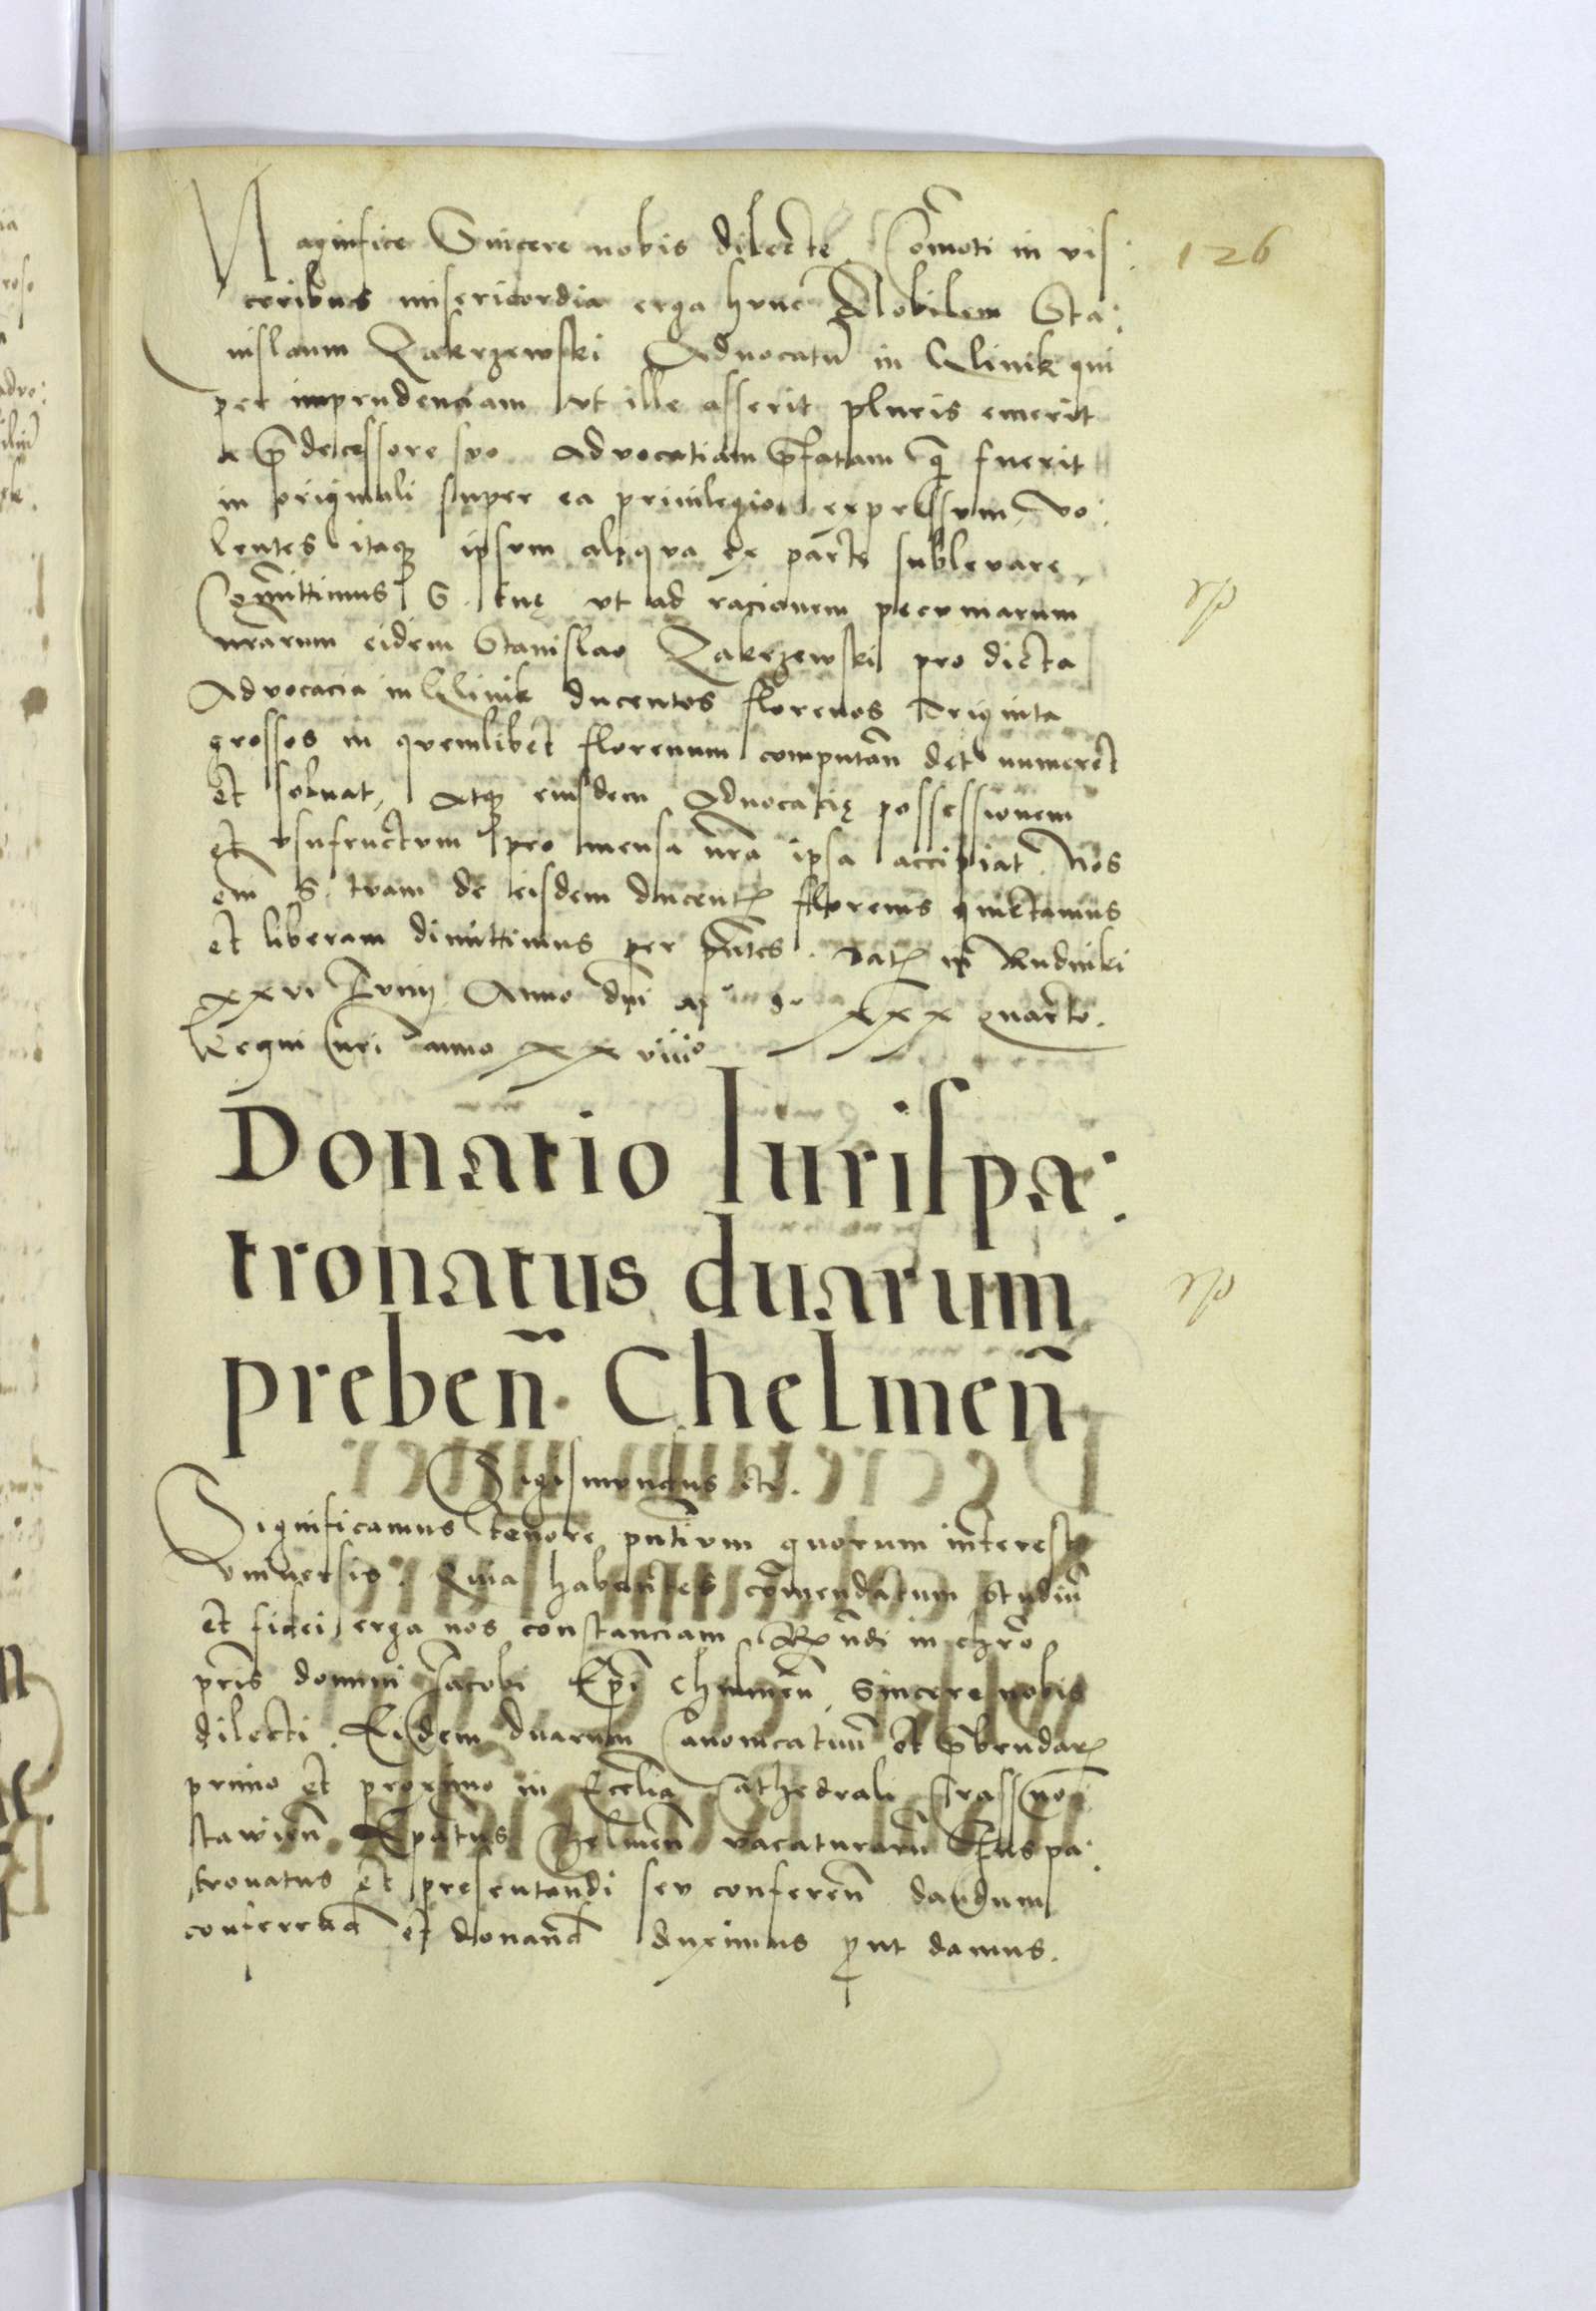 Magnifice Sincere nobis dilecte. Com̄oti in vis: 126
ceribus misericordia erga hunc Nobilem Sta:
nislaum Zakrzewski Advocatū in Glinik qui
per imprudenciam vt ille asserit pluris emerit
a p̄decessore suo Advocatiam p̄fatam q̄ fuerit
in originali super ea privilegio expressum, vo:
lentes itaq; ipsum aliqua ex parte sublevare,
Com̄ittimus S. tuę vt ad racionem pecuniarum
nrārum eidem Stanislao Zakrzewski pro dicta
Advocacia in Glinik ducentos florenos triginta
grossos in quemlibet florenum computan̄ det numeret
et solvat, Atq; eiusdem Advocacię possessionem
et vsufructum pro mensa nrā ipsa accipiat. Nos
em̄ S. tuam de eisdem ducentꝭ florenis quietamus
et liberam dimittimus per pn̄tes. Datꝭ in Rudniki
xxvi Iunij Anno dn̄i xxx quarto.
Regni nr̄i anno xxviiiº
Donatio Iurispa:
tronatus duarum
preben̄. Chelmen̄
Sigismundus etc.
Significamus tenore pn̄tium quorum interest
vniversis. Quia habentes com̄endatum studiū
et fidei erga nos constanciam Rꝭ n̄di in chrō
pr̄is domini Iacobi Ep̄i Chelmen̄, Sincere nobis
dilecti. Eidem duarum Canonicatuū et p̄bendarꝭ
primo et proximo in Ecclīa Cathedrali Crassno:
stawien̄ Ep̄atus Chelmen̄ vacaturarū Iuspa:
tronatus et presentandi seu conferen̄ dandum
conferend̄ et donand̄ duximus ꝓut damus.